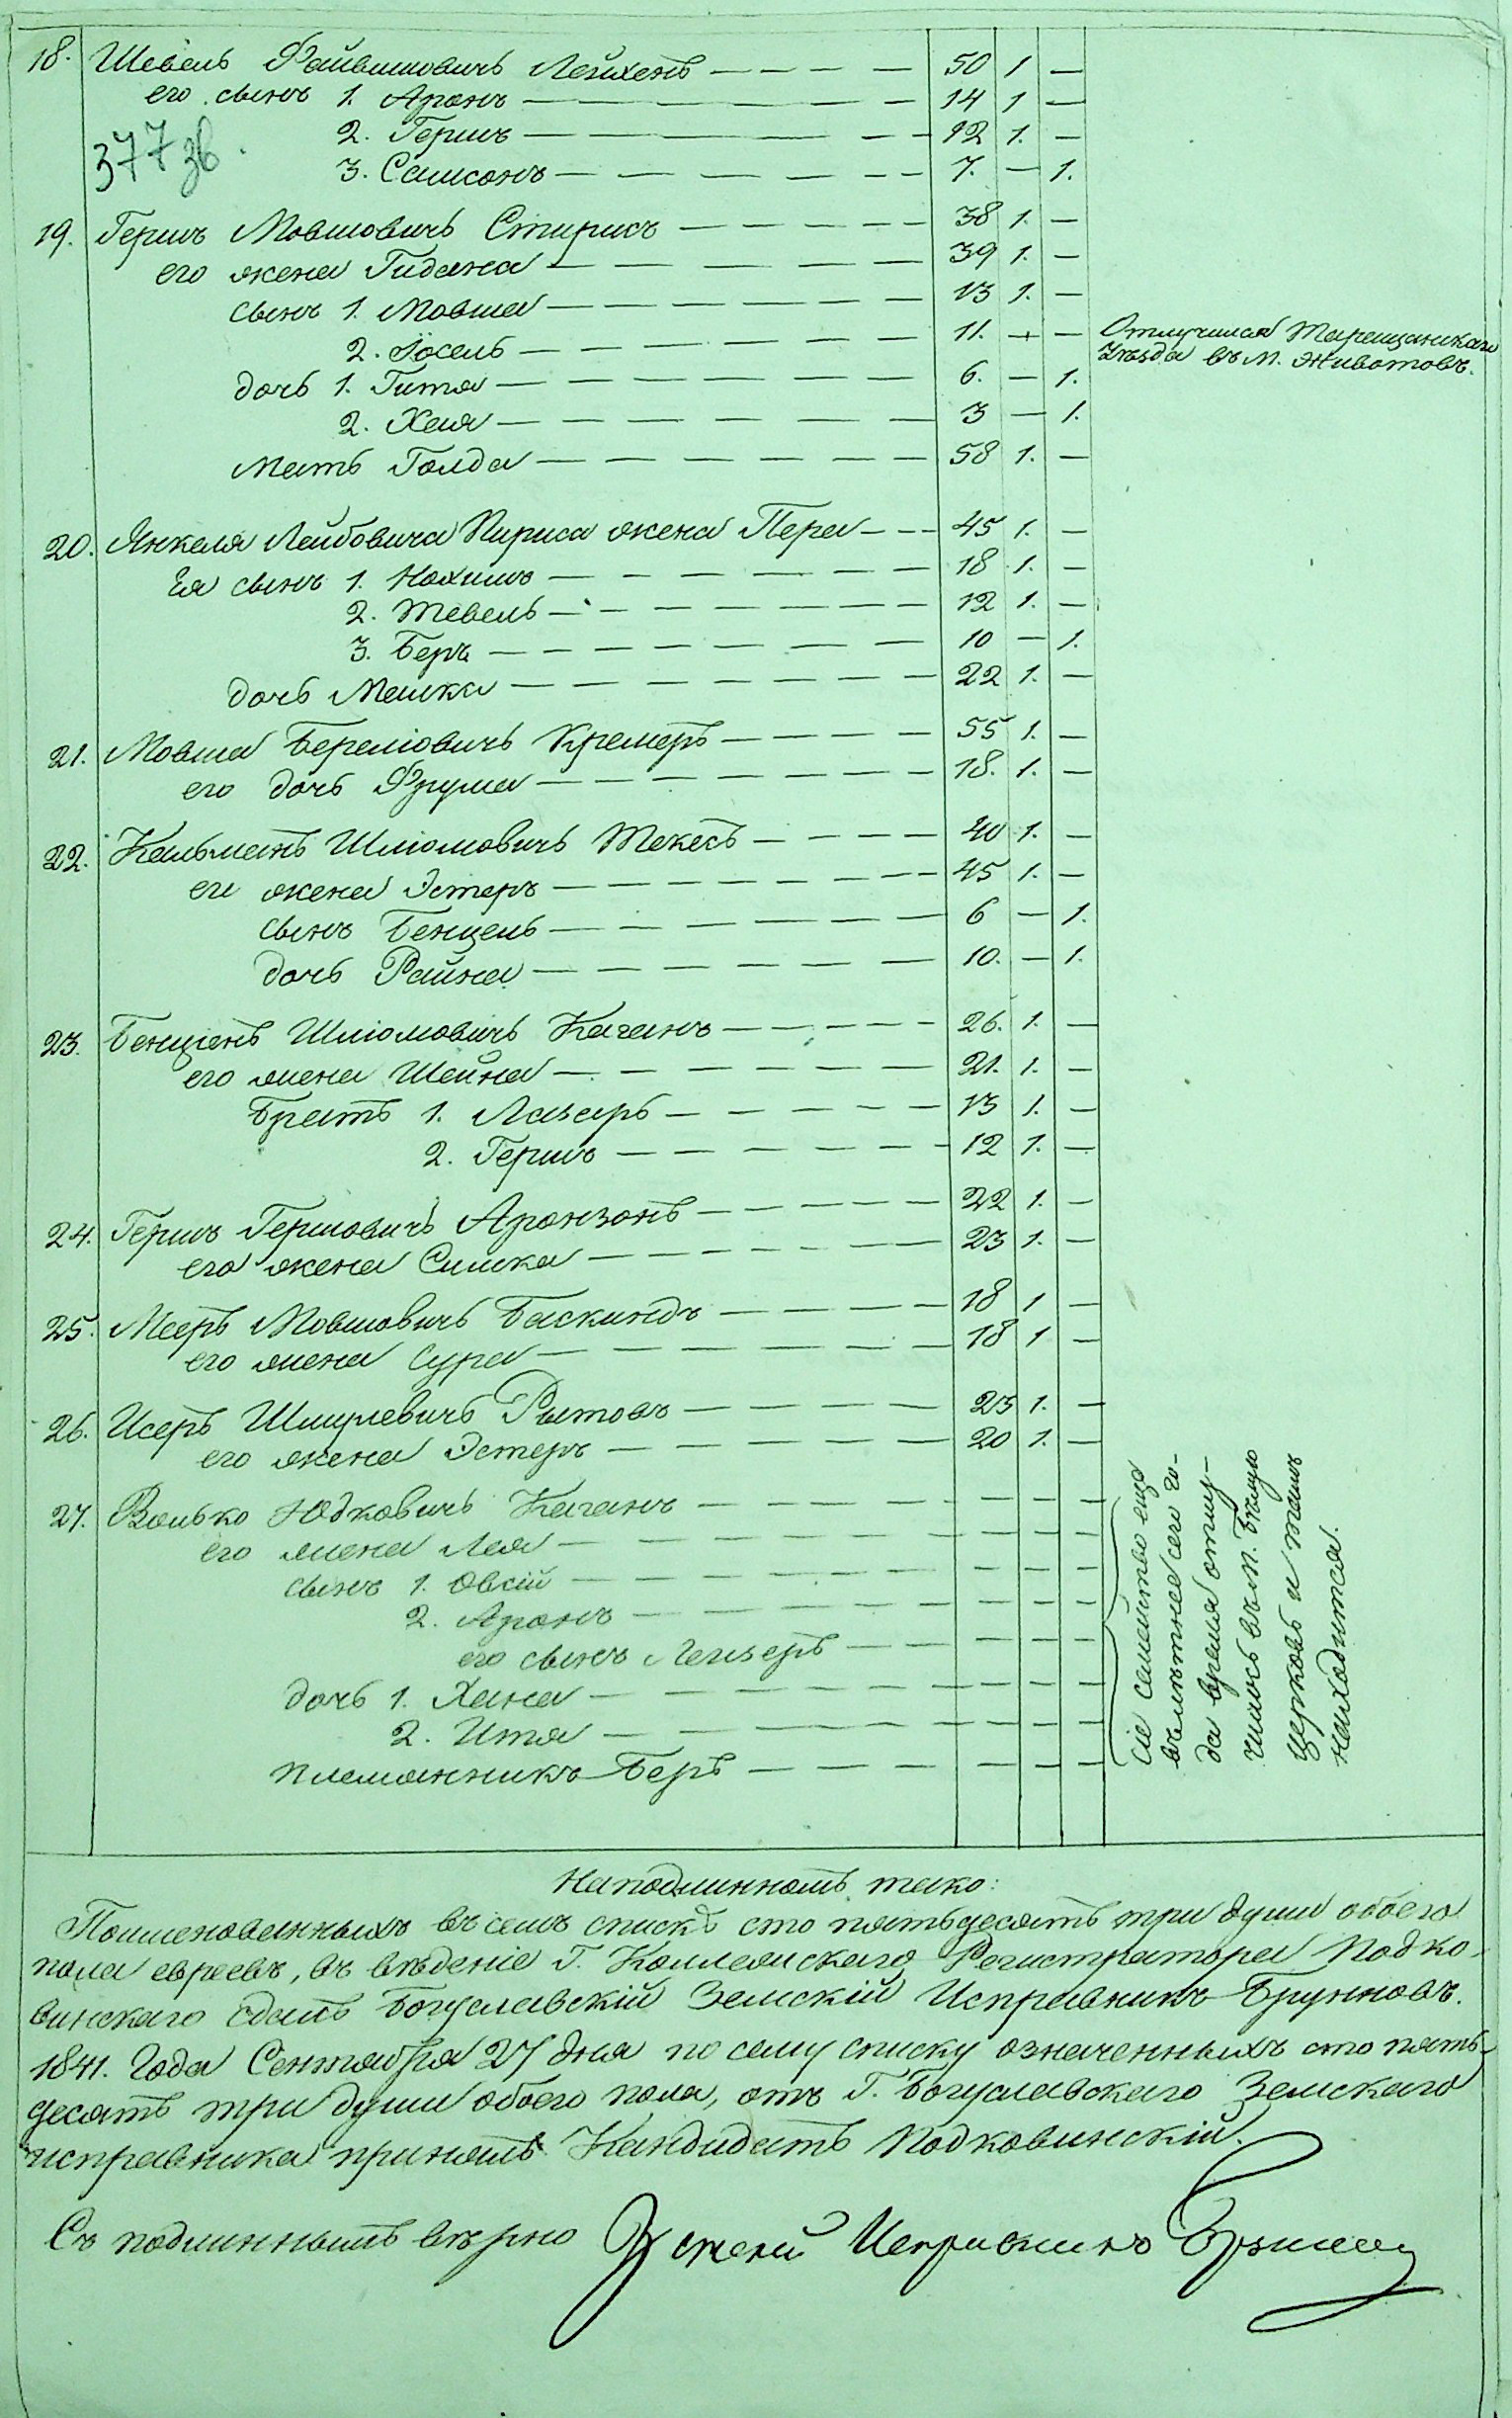 18. Шевель Файвишовичъ Лейхенъ — — — — 50 1 —
его сынъ 1. Аронъ — — — — 14 1 —
2. Гершъ — — — — 12 1. —
377 зв.
3. Самсонъ — — — — 7. — 1.
19. Гершъ Мовшовичъ Стирисъ — — — — 38 1. —
его жена Гидана — — — — 39 1. —
сынъ 1. Мовша — — — — 13 1. —
2. Іосель — — — — 11. — — Отлучился Таращанскаго
Уѣзда въ м. Животовъ.
дочь 1. Гитя — — — — 6. — 1.
2. Хая — — — — 3 — 1.
мать Голда — — — — 58 1. —
20. Янкеля Лейбовича Пириса жена Пера — — 45 1. —
Ея сынъ 1. Нахимъ — — — — 18 1. —
2. Тевель — — — — 12 1. —
3. Беръ — — — — 10 — 1.
дочь Малка — — — — 22 1. —
21. Мовша Береліовичъ Кремеръ — — — — 55 1. —
его дочь Фрума — — — — 18. 1. —
22. Кальманъ Шліомовичъ Текесъ — — — — 40 1. —
его жена Эстеръ — — — — 45 1. —
сынъ Бенцель — — — — 6 — 1.
дочь Райна — — — — 10. — 1.
23. Бенціонъ Шліомовичъ Каганъ — — — — 26. 1. —
его жена Шейна — — — — 21. 1. —
братъ 1. Лазаръ — — — — 13 1. —
2. Гершъ — — — — 12 1. —
24. Гершъ Гершовичъ Аронзонъ — — — — 22 1. —
его жена Симка — — — — 23 1. —
25. Мееръ Мовшовичъ Баскиндъ — — — — 18 1 —
его жена Сура — — — — 18 1 —
26. Исеръ Шмулевичъ Рытовъ — — — — 23 1. —
его жена Эстеръ — — — — 20 1. —
27. Волько Юдковичъ Каганъ — — — — — — —
его жена Лея — — — — — — —
сынъ 1. Овсій — — — — — — —
2. Аронъ — — — — — — —
его сынъ Лейзеръ — — — — — —
дочь 1. Хана — — — — — — —
2. Итя — — — — — — —
племянникъ Беръ — — — — — —
Сіе семейство еще
въ лѣтнее сего го-
да время отлу-
чилось въ м. Бѣлую
Церковь и тамъ
находится.
На подлинномъ тако:
Поименованныхъ въ семъ спискѣ сто пятьдесятъ три души обоего
пола евреевъ, въ вѣденіе Г. Коллежскаго Регистратора Подко-
винскаго сдалъ Богуславскій Земскій Исправникъ Брунновъ.
1841. Года Сентября 27 дня по сему списку означенныхъ сто пять-
десятъ три души обоего пола, отъ Г. Богуславскаго Земскаго
исправника принялъ Кандидатъ Подковинскій.
Съ подлиннымъ вѣрно Земскій Исправникъ